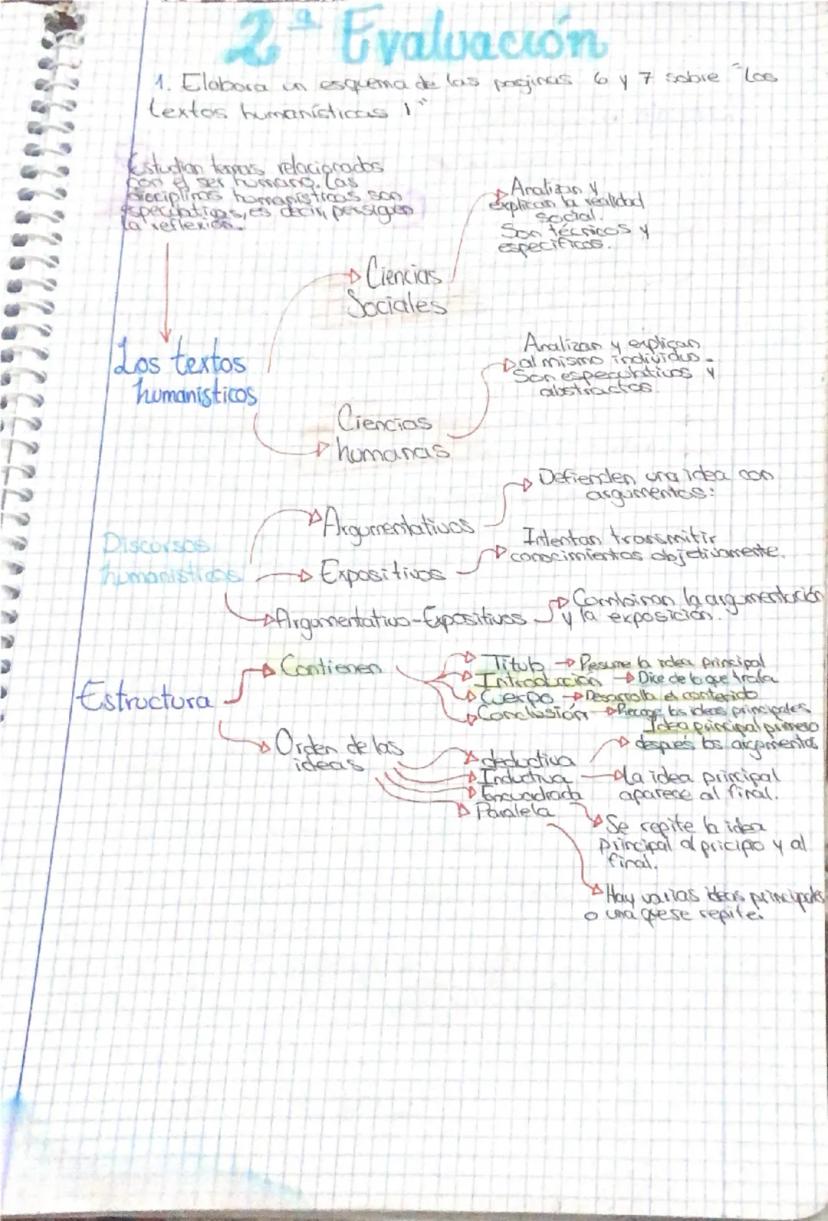 2ª Evaluación
1. Elabora un esquema de las paginas 6 y 7 sobre "Los
textos humanísticas 1"
Estudian temas relacionados
con el ser humano. Las
disciplinas humanísticas son
especulativas, es decir, persiguen
la reflexión.
Los textos
humanísticos
Ciencias
Sociales
Analizan y
explican la realidad
social.
Son técnicos y
específicos.
Ciencias
humanas
Analizan y explican
al mismo individuo.
Son especulativos y
abstractos.
Discursos
humanísticos
Argumentativos
Defienden una idea con
argumentos:
Expositivos
Intentan transmitir
conocimientos objetivamente.
Argumentativo-Expositivos
Combinan la argumentación
y la exposición.
Estructura
Contienen
Título → Resume la idea principal
Introducción → Dice de lo que trata
Cuerpo → Desarrolla el contenido
Conclusión → Recoge las ideas principales
Orden de las
ideas
deductiva
Idea principal primero
después los argumentos
Inductiva
La idea principal
aparece al final.
Encuadrada
Se repite la idea
principal al pricipio y al
final.
Paralela
Hay varias ideas principales
o una que se repite.